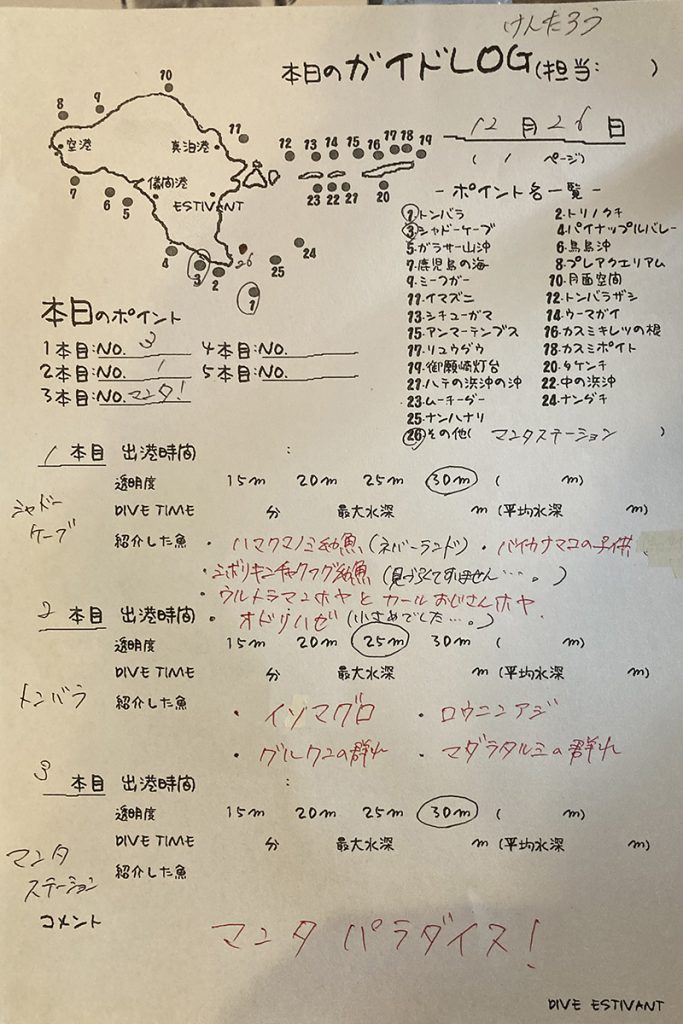 けんたろう
本日のガイドLOG(担当: )
12月26日
( 1 ページ)
10
8 9
空港 真泊港 11 12 13 14 15 16 17 18 19
7 儀間港 23 22 21 20
6 5 ESTIVANT
4 3 2 26 25 24
1
- ポイント名一覧 -
1.トンバラ 2.トリノクチ
3.シャドーケーブ 4.パイナップルバレー
5.ガラサー山沖 6.鳥島沖
7.鹿児島の海 8.プレアクエリアム
9.ミーフガー 10.月面空間
11.イマズニ 12.トンバラザシ
13.シチューガマ 14.ウーマガイ
15.アンマーテンブス 16.カスミキレツの根
17.リュウグウ 18.カスミポイト
19.御願崎灯台 20.タケンチ
21.ハテの浜沖の沖 22.中の浜沖
23.ムーチーガー 24.ナンダキ
25.ナンハナリ
26.その他( マンタステーション )
本日のポイント
1本目:NO. 3 4本目:NO.
2本目:NO. 1 5本目:NO.
3本目:NO.マンタ!
1 本目 出港時間 :
透明度 15m 20m 25m 30m ( m)
シャドーケーブ
DIVE TIME 分 最大水深 m (平均水深 m)
紹介した魚 ・ハマクマノミ幼魚(ネバーランド) ・バイカナマコの子供
・シボリキンチャクフグ幼魚 (見づらくてすいません…。)
・ウルトラマンホヤとカールおじさんホヤ
2 本目 出港時間 : ・オドリハゼ(小さめでした…。)
透明度 15m 20m 25m 30m ( m)
DIVE TIME 分 最大水深 m (平均水深 m)
トンバラ 紹介した魚 ・イソマグロ ・ロウニンアジ
・グルクンの群れ ・マダラタルミの群れ
3 本目 出港時間 :
透明度 15m 20m 25m 30m ( m)
DIVE TIME 分 最大水深 m (平均水深 m)
マンタステーション 紹介した魚
コメント
マンタ パラダイス!
DIVE ESTIVANT